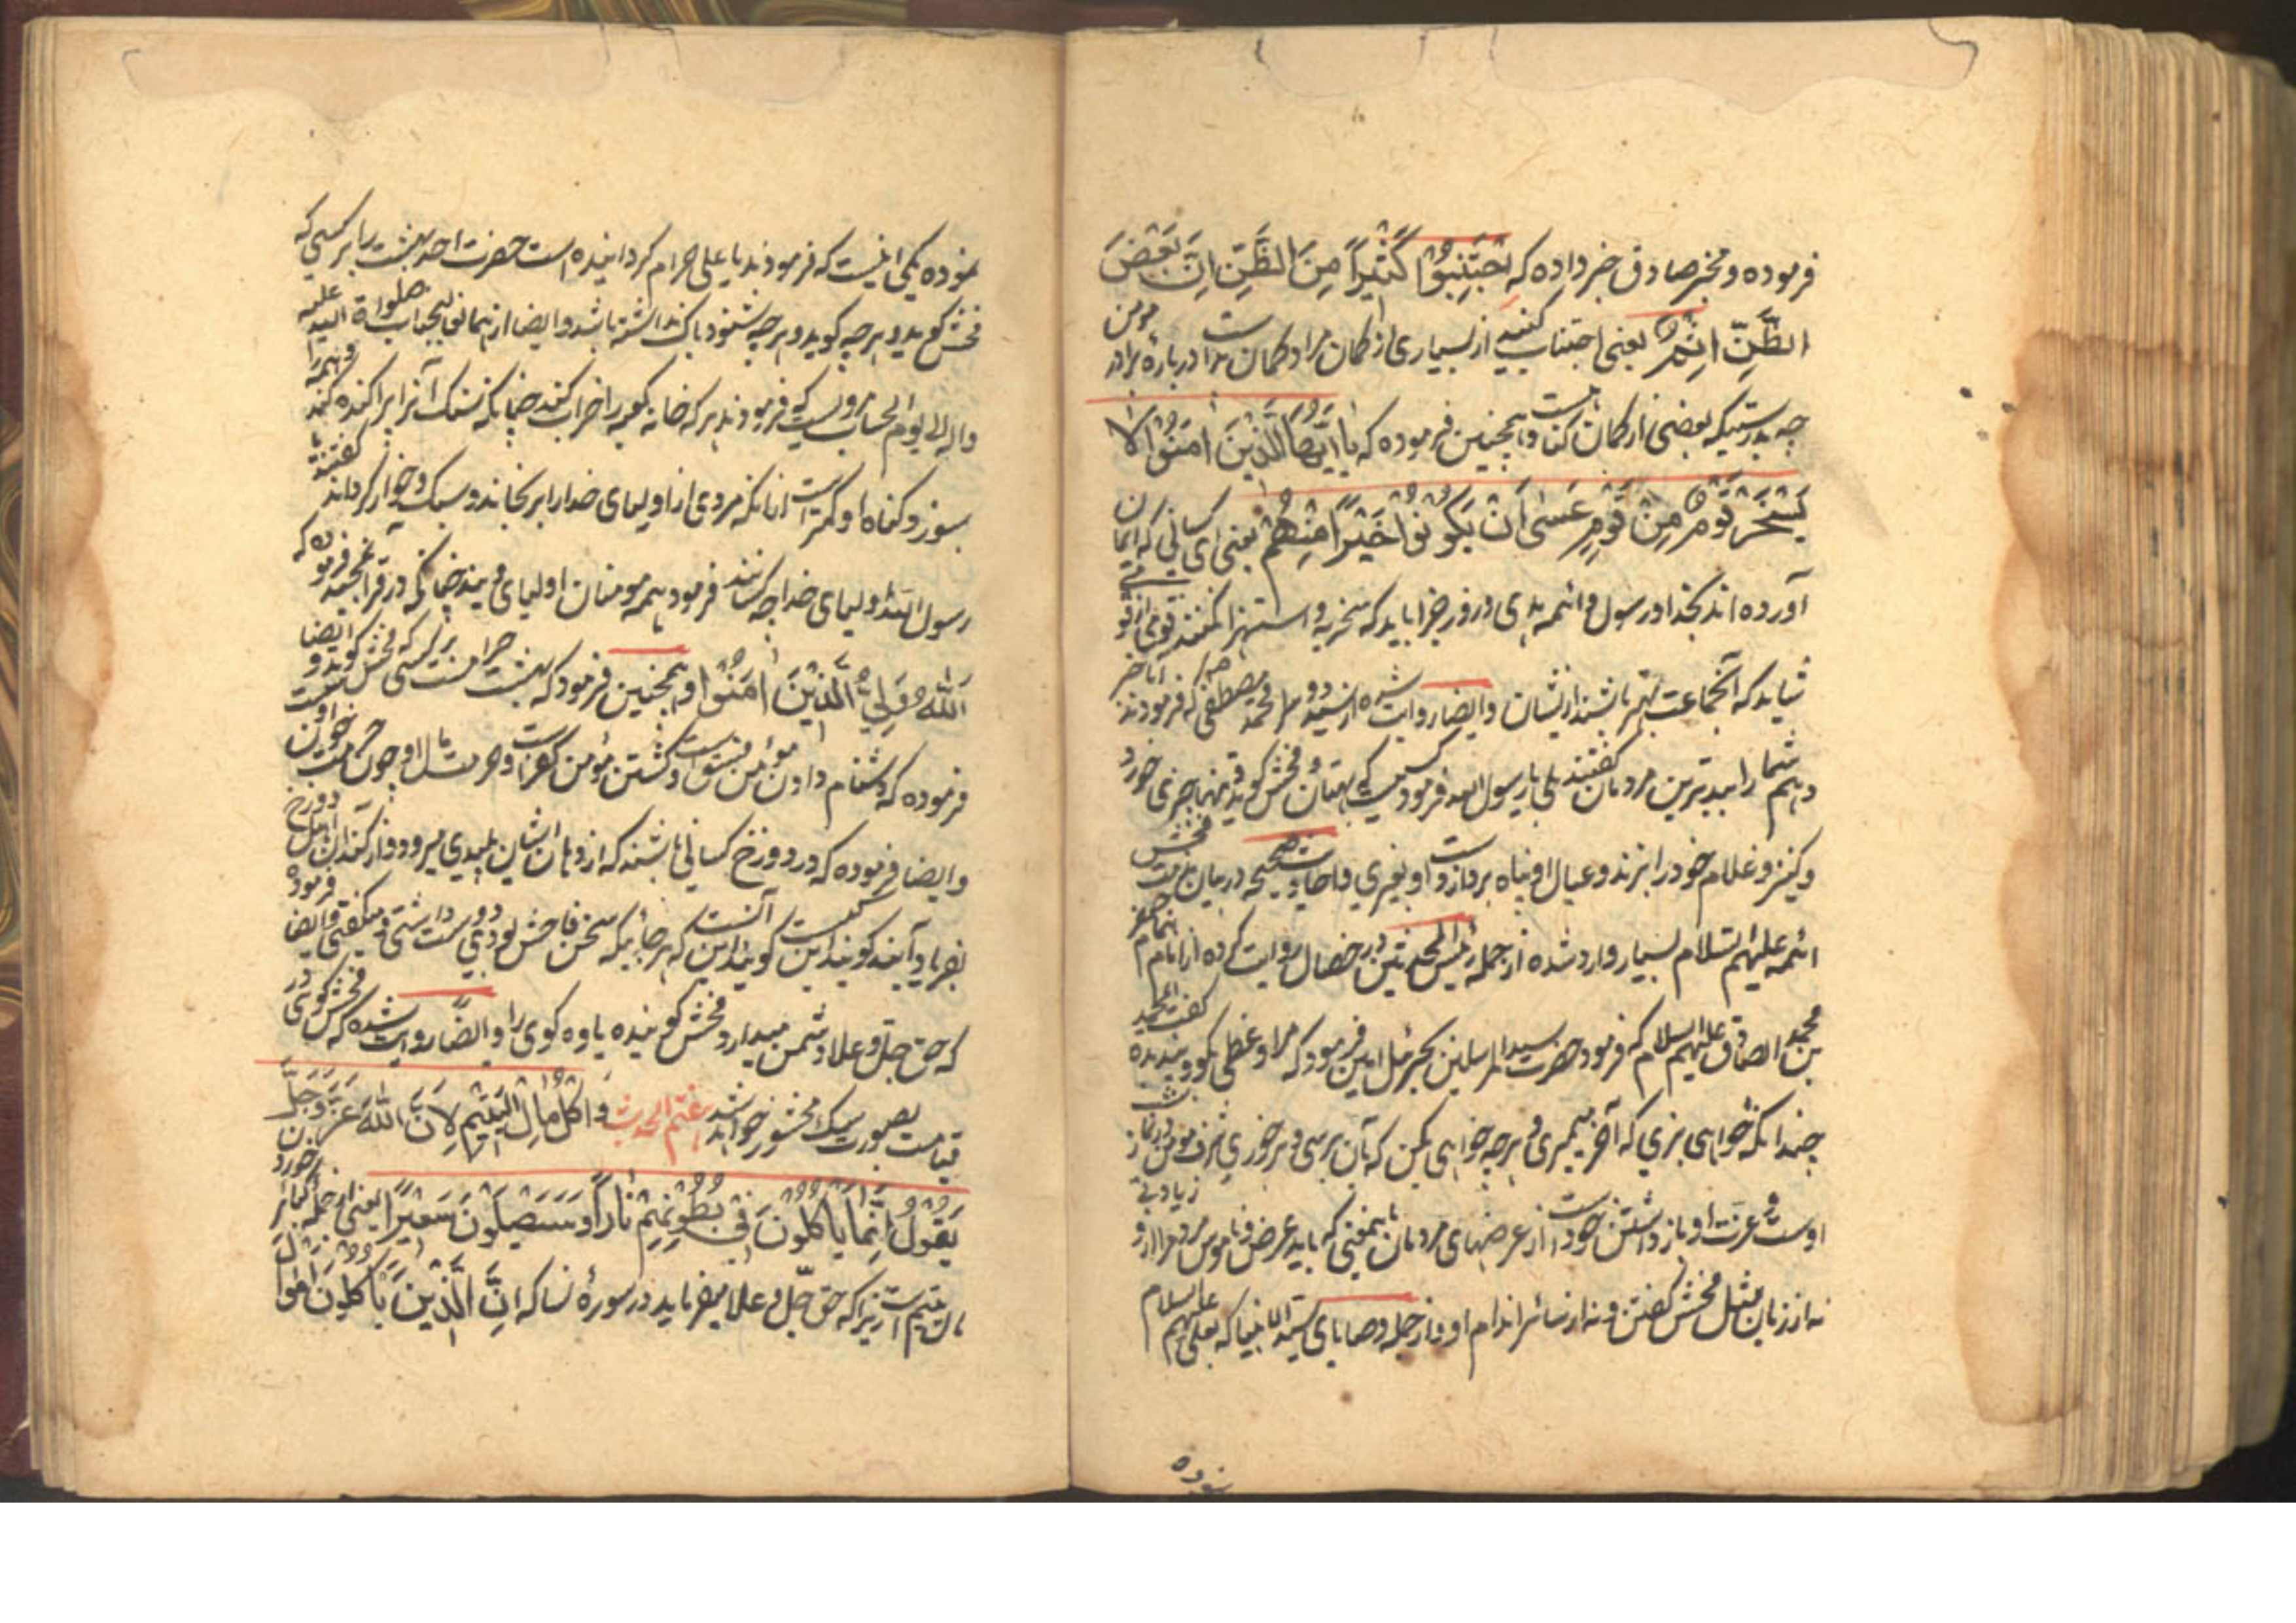 فرموده و مخبر صادق خبر داده که اجْتَنِبُوا كَثِيرًا مِنَ الظَّنِّ إِنَّ بَعْضَ
الظَّنِّ إِثْمٌ یعنی اجتناب کنید از بسیاری از کمان مراد کمان بد است درباره برادر مومن
چه بدرستیکه بعضی از کمان کناه است و همچنین فرموده که يَا أَيُّهَا الَّذِينَ آمَنُوا لَا
يَسْخَرْ قَوْمٌ مِنْ قَوْمٍ عَسَى أَنْ يَكُونُوا خَيْرًا مِنْهُمْ یعنی ای کسانی که ایمان
آورده اند بخدا و رسول و ائمه هدی و روز جزا باید که سخریه و استهزا نکنند قومی از قومی
شاید که آنجماعت بهتر باشند از ایشان و ایضا روایت شده از سید دو سرا محمد مصطفی که فرمودند آیا خبر
دهم شما را ببدترین مردمان گفتند بلی یا رسول الله فرمود کسیست که بهتان و فحش کوید و تنها چیزی خورد
و کنیز و غلام خود را بزند و عیال او پناه برد از دست او بغیری و احادیث صحیحه در میان مذمت فحش
ائمه علیهم السلام بسیار وارد شده از جمله رئیس المحدثین در خصال روایت کرده از امام همام جعفر
بن محمد الصادق علیهم السلام که فرمود حضرت سید المرسلین بجبرئیل امین فرمود که مرا وعظی بکو و پند بده گفت ای محمد
چندانکه خواهی بزی که آخر بمیری و هر چه خواهی بکن که بآن برسی و برخوری شرف مومن در نماز شب
اوست و عزت او باز داشتن خود است از عرضهای مردمان باینمعنی که باید عرض و ناموس مردم را از او
نه از زبان مثل فحش گفتن و نه از سائر اندام او و از جمله وصایای سید انبیا که بعلی علیهم السلام
نموده
نموده یکی اینست که فرمودند یا علی حرام کردانیده است حضرت احد بهشت را بر کسی که
فحش کوید و هر چه کوید و هر چه شنود باک نداشته باشد و ایضا از همان عالیجناب صلواة الله علیه
واله الی یوم الحساب مرویست که فرمودند هر که خانه کعبه را خراب کند چنانکه سنک آنرا پراکنده کند و همه را
بسوزد کناه او کمتر است از انکه مردی از اولیای خدا را برنجاند و سبک و خوار کرداند گفتند یا
رسول الله اولیای خدا چه کسانند فرمود همه مومنان اولیای ویند چنانکه در قران مجید فرموده که
اَللّٰهُ وَلِيُّ الَّذِينَ آمَنُوا و همچنین فرمود که بهشت حرامست بر کسی که فحش کوید و ایضا
فرموده که دشنام دادن مؤمن فسق است و کشتن مؤمن کفر است و حرمت مال او چون حرمت خون اوست
و ایضا فرموده که در دوزخ کسانی باشند که از دهان ایشان پلیدی میرود و از کند آن اهل دوزخ
بفریاد آیند کویند این کیست کویند این آنست که هر جائیکه سخن فاحش بودی دوست داشتی و میکفتی و ایضا فرموده
که حق جل و علا دشمن میدارد فحش کوینده یاوه کوی را و ایضا روایت شده که فحش کوی در
قیامت بصورت سک محشور خواهد شد هفتم الحدیث وَ اَكْلُ مَالِ الْيَتِيمِ لِاَنَّ اللّٰهَ عَزَّ وَ جَلَّ
يَقُولُ اِنَّمَا يَأْكُلُونَ فِي بُطُونِهِمْ نَارًا وَ سَيَصْلَوْنَ سَعِيرًا یعنی از جمله کبائر خوردن
مال یتیم است زیرا که حق جل و علا میفرماید در سوره نسا که اِنَّ الَّذِينَ يَأْكُلُونَ اَمْوَالَ